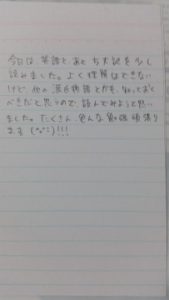 今日は、英語とあと古文記を少し
読みました。よく理解はできない
けど、他の源氏物語とかも、知っておく
べきだと思うので、読んでみようと思い
ました。たくさん、色んな勉強頑張り
ます(^o^)!!!